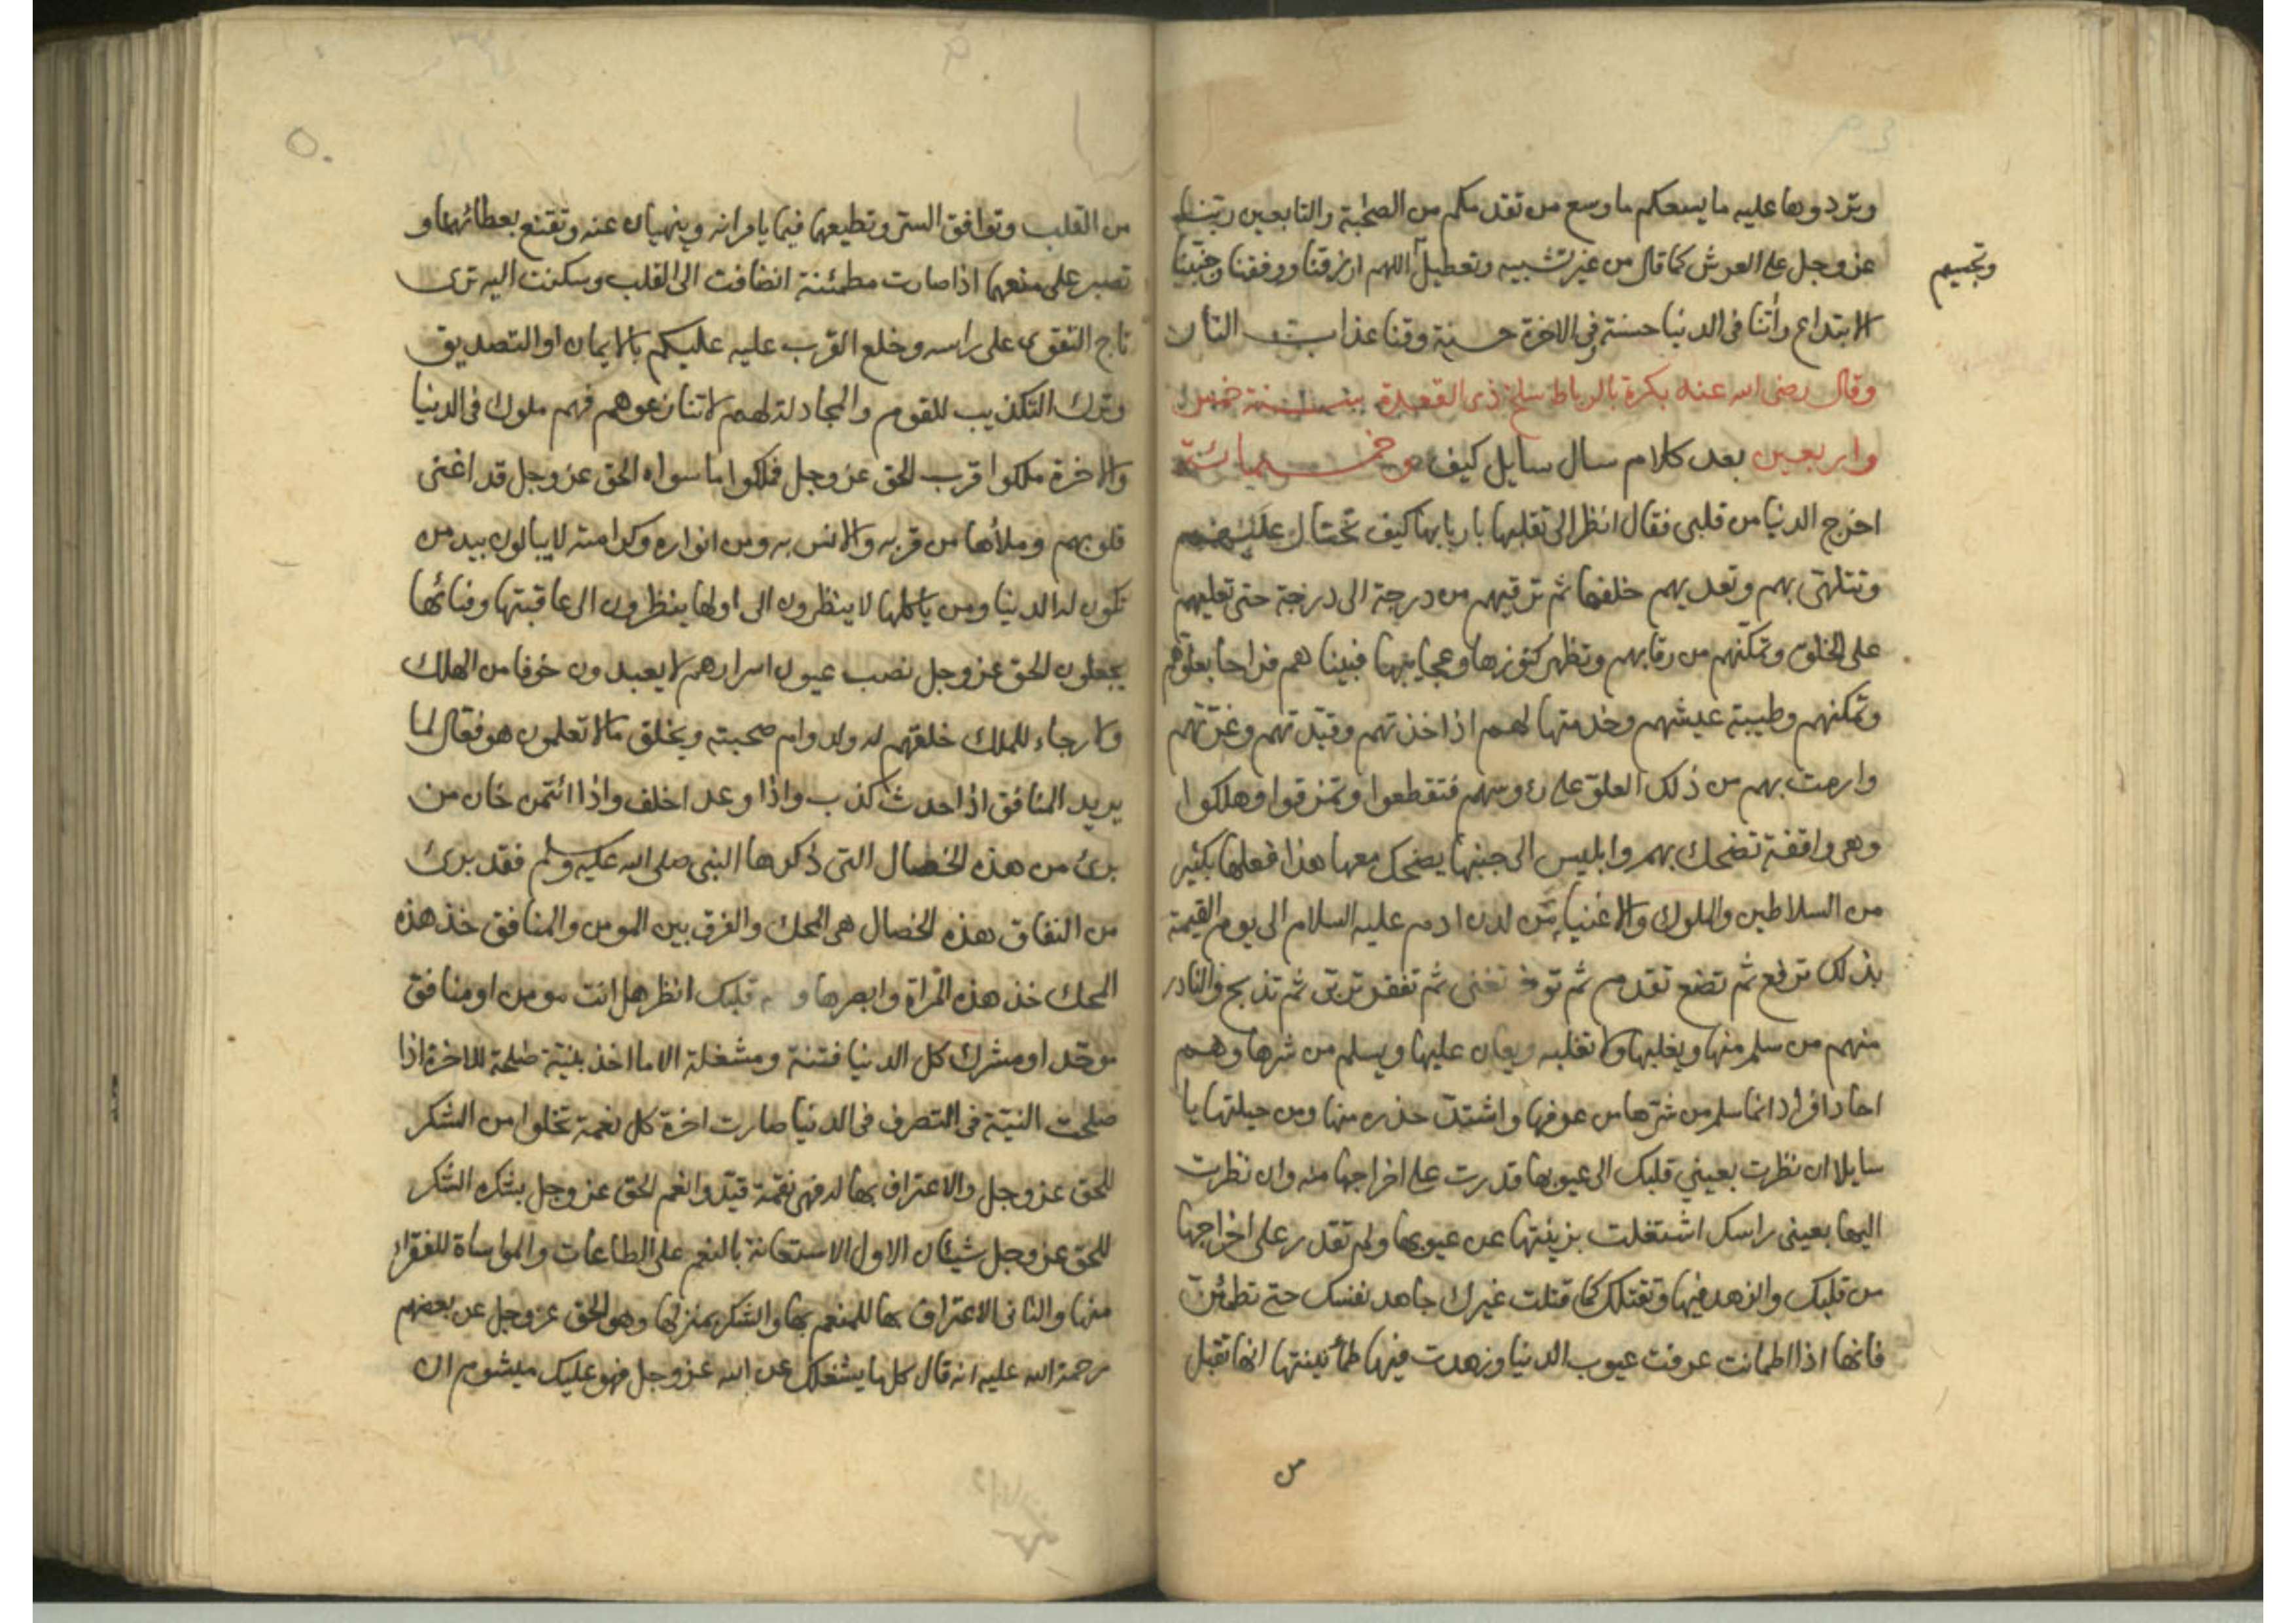 وتردوها عليه ما يسعكم ما وسع من تقدمكم من الصحابة والتابعين ربنا
عز وجل على العرش كما قال من غير تشبيه وتعطيل اللهم ارزقنا ووفقنا وجنبنا
وتجسيم
الابتداع واتنا فى الدنيا حسنة وفى الاخرة حسنة وقنا عذاب النار
وقال رضى الله عنه بكرة بالرباط سلخ ذى القعدة سنة خمس
واربعين وخمسمائة بعد كلام سال سايل كيف
اخرج الدنيا من قلبى فقال انظر الى تقلبها باربابها كيف تحتال عليهم
وتتلهى بهم وتعديهم خلفها ثم ترقيهم من درجة الى درجة حتى تعليهم
على الخلق وتمكنهم من رقابهم وتظهر كنوزها وعجايبها فبينا هم فراحا بعلوهم
وتمكنهم وطيبة عيشهم وخدمتها لهم اذ اخذتهم وقيدتهم وغرتهم
وارمت بهم من ذلك العلو على رءوسهم فتقطعوا وتمزقوا وهلكوا
وهى واقفة تضحك بهم وابليس الى جنبها يضحك معها هذا فعلها بكثير
من السلاطين والملوك والاغنياء من لدن ادم عليه السلام الى يوم القيمة
بذلك ترفع ثم تضع تقدم ثم توخر تغنى ثم تفقر تربى ثم تذبح والنادر
منهم من سلم منها ويغلبها ولا تغلبه ويعان عليها ويسلم من شرها وهم
احاد افراد انما سلم من شرها من عرفها واشتد حذره منها ومن حيلتها يا
سايلا ان نظرت بعينى قلبك الى عيوبها قدرت على اخراجها منه وان نظرت
اليها بعينى راسك اشتغلت بزينتها عن عيوبها ولم تقدر على اخراجها
من قلبك والزهد فيها وتقتلك كما قتلت غيرك جاهد نفسك حتى تطمئن
فانها اذا اطمانت عرفت عيوب الدنيا وزهدت فيها طمأنينتها انها تقبل
من
من القلب وتوافق السر وتطيعها فيما يامرانه وينهيان عنه وتقنع بعطائهما و
تصبر على منعهما اذا صارت مطمئنة انضافت الى القلب وسكنت اليه ترى
تاج التقوى على راسه وخلع القرب عليه عليكم بالايمان او التصديق
وترك التكذيب للقوم والمجادلة لهم لا تنازعوهم فهم ملوك فى الدنيا
والاخرة ملكوا قرب الحق عز وجل فملكوا ما سواه الحق عز وجل قد اغنى
قلوبهم وملأها من قربه والانس به ومن انواره وكرامته لا يبالون بيد من
تكون له الدنيا ومن ياكلها لا ينظرون الى اولها ينظرون الى عاقبتها وفنائها
يجعلون الحق عز وجل نصب عيون اسرارهم لا يعبدون خوفا من الهلك
ولا رجاء للملك خلقهم له ولدوام صحبته ويخلق ما لا تعلمون هو فعال لما
يريد المنافق اذا حدث كذب واذا وعد اخلف واذا ائتمن خان من
برئ من هذه الخصال التى ذكرها النبى صلى الله عليه وسلم فقد برئ
من النفاق هذه الخصال هى المحك والفرق بين المومن والمنافق خذ هذه
المحك خذ هذه المراة وابصرها قلبك انظر هل انت مومن او منافق
موحد او مشرك كل الدنيا فتنة ومشغلة الا ما اخذ بنية صلحة للاخرة اذا
صلحت النية فى التصرف فى الدنيا صارت اخرة كل نعمة تخلوا من الشكر
للحق عز وجل والاعتراف بها له فهى نقمة قيدوا نعم الحق عز وجل بشكره الشكر
للحق عز وجل شيئان الاول الاستعانة بالنعم على الطاعات والمواساة للفقراء
منها والثانى الاعتراف بها للمنعم بها والشكر بمنزلها وهو الحق عز وجل عن بعضهم
رحمة الله عليه انه قال كل ما يشغلك عن الله عز وجل فهو عليك ميشوم ان